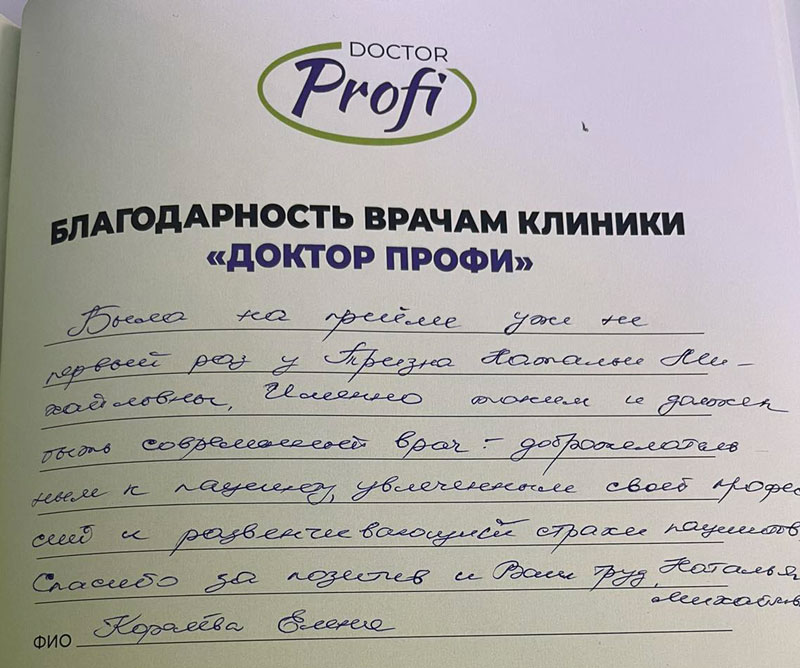 DOCTOR
Profi
БЛАГОДАРНОСТЬ ВРАЧАМ КЛИНИКИ
«ДОКТОР ПРОФИ»
Была на приёме уже не
первый раз у Тризна Натальи Ми-
хайловны, Именно таким и должен
быть современный врач - доброжелатель
ным к пациенту, увлеченным своей профес
сией и развенчивающий страхи пациентов,
Спасибо за позитив и Ваш труд, Наталья
Михайловна
ФИО Королёва Елена